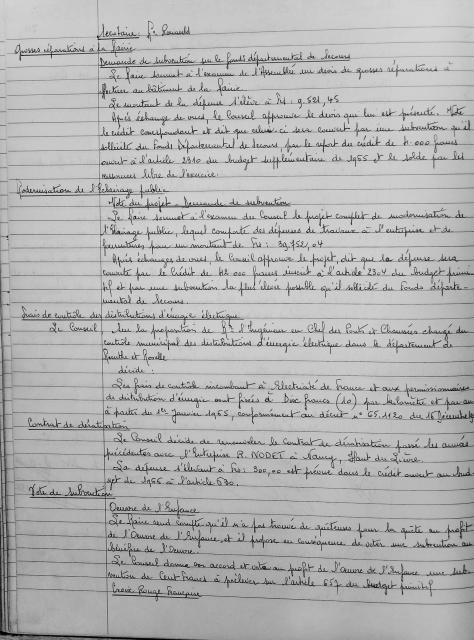 Secrétaire: Mr
Grosses réparations à la Mairie
Demande de subvention sur le fonds départemental de Secours
Le Maire soumet à l'examen de l'Assemblée un devis de grosses réparations à
effectuer au bâtiment de la Mairie.
Le montant de la dépense s'élève à Frs: 9.521,45
Après échange de vues, le Conseil approuve le devis que lui est présenté. Vote
le crédit correspondant et dit que celui-ci sera couvert par une subvention qu'il
sollicite du Fonds Départemental de Secours, par le report du crédit de 4.000 francs
ouvert à l'article 2310 du budget supplémentaire de 1965 et le solde par les
ressources libre de l'exercice.
Modernisation de l'Eclairage public
Vote du projet - Demande de subvention
Le Maire soumet à l'examen du Conseil le projet complet de modernisation de
l'Eclairage public, lequel comporte des dépenses de travaux à l'entreprise et de
fournitures pour un montant de Frs: 39.752,04
Après échanges de vues, le Conseil approuve le projet, dit que la dépense sera
couverte par le Crédit de 42 000 francs inscrit à l'article 2304 du budget primi-
tif et par une subvention la plus élevée possible qu'il sollicite du Fonds départe-
mental de Secours.
Frais de contrôle des distributions d'énergie électrique
Le Conseil, Sur la proposition de Mr l'Ingénieur en Chef des Ponts et Chaussées chargé du
contrôle municipal des distributions d'énergie électrique dans le département de
Meurthe et Moselle
décide:
Les frais de contrôle incombant à Electricité de France et aux permissionnaires
de distribution d'énergie sont fixés à Dix francs (10) par kilomètre et par an
à partir du 1er Janvier 1965, conformément au décret n° 65.1120 du 16 Décembre
Contrat de dératisation
Le Conseil décide de renouveler le contrat de dératisation passé les années
précédentes avec l'Entreprise R. NODET à Nancy, Haut du Lièvre.
La dépense s'élevant à Frs: 300,00 est prévue dans le crédit ouvert au bud-
get de 1966 à l'article 630.
Vote de subvention
Oeuvre de l'Enfance
Le Maire rend compte qu'il n'a pas trouvé de quêteuses pour la quête au profit
de l'Oeuvre de l'Enfance, et il propose en conséquence de voter une subvention au
bénéfice de l'Oeuvre.
Le Conseil donne son accord et vote au profit de l'Oeuvre de l'Enfance une sub-
vention de Cent Francs à prélever sur l'article 657 du budget primitif
Croix Rouge Française